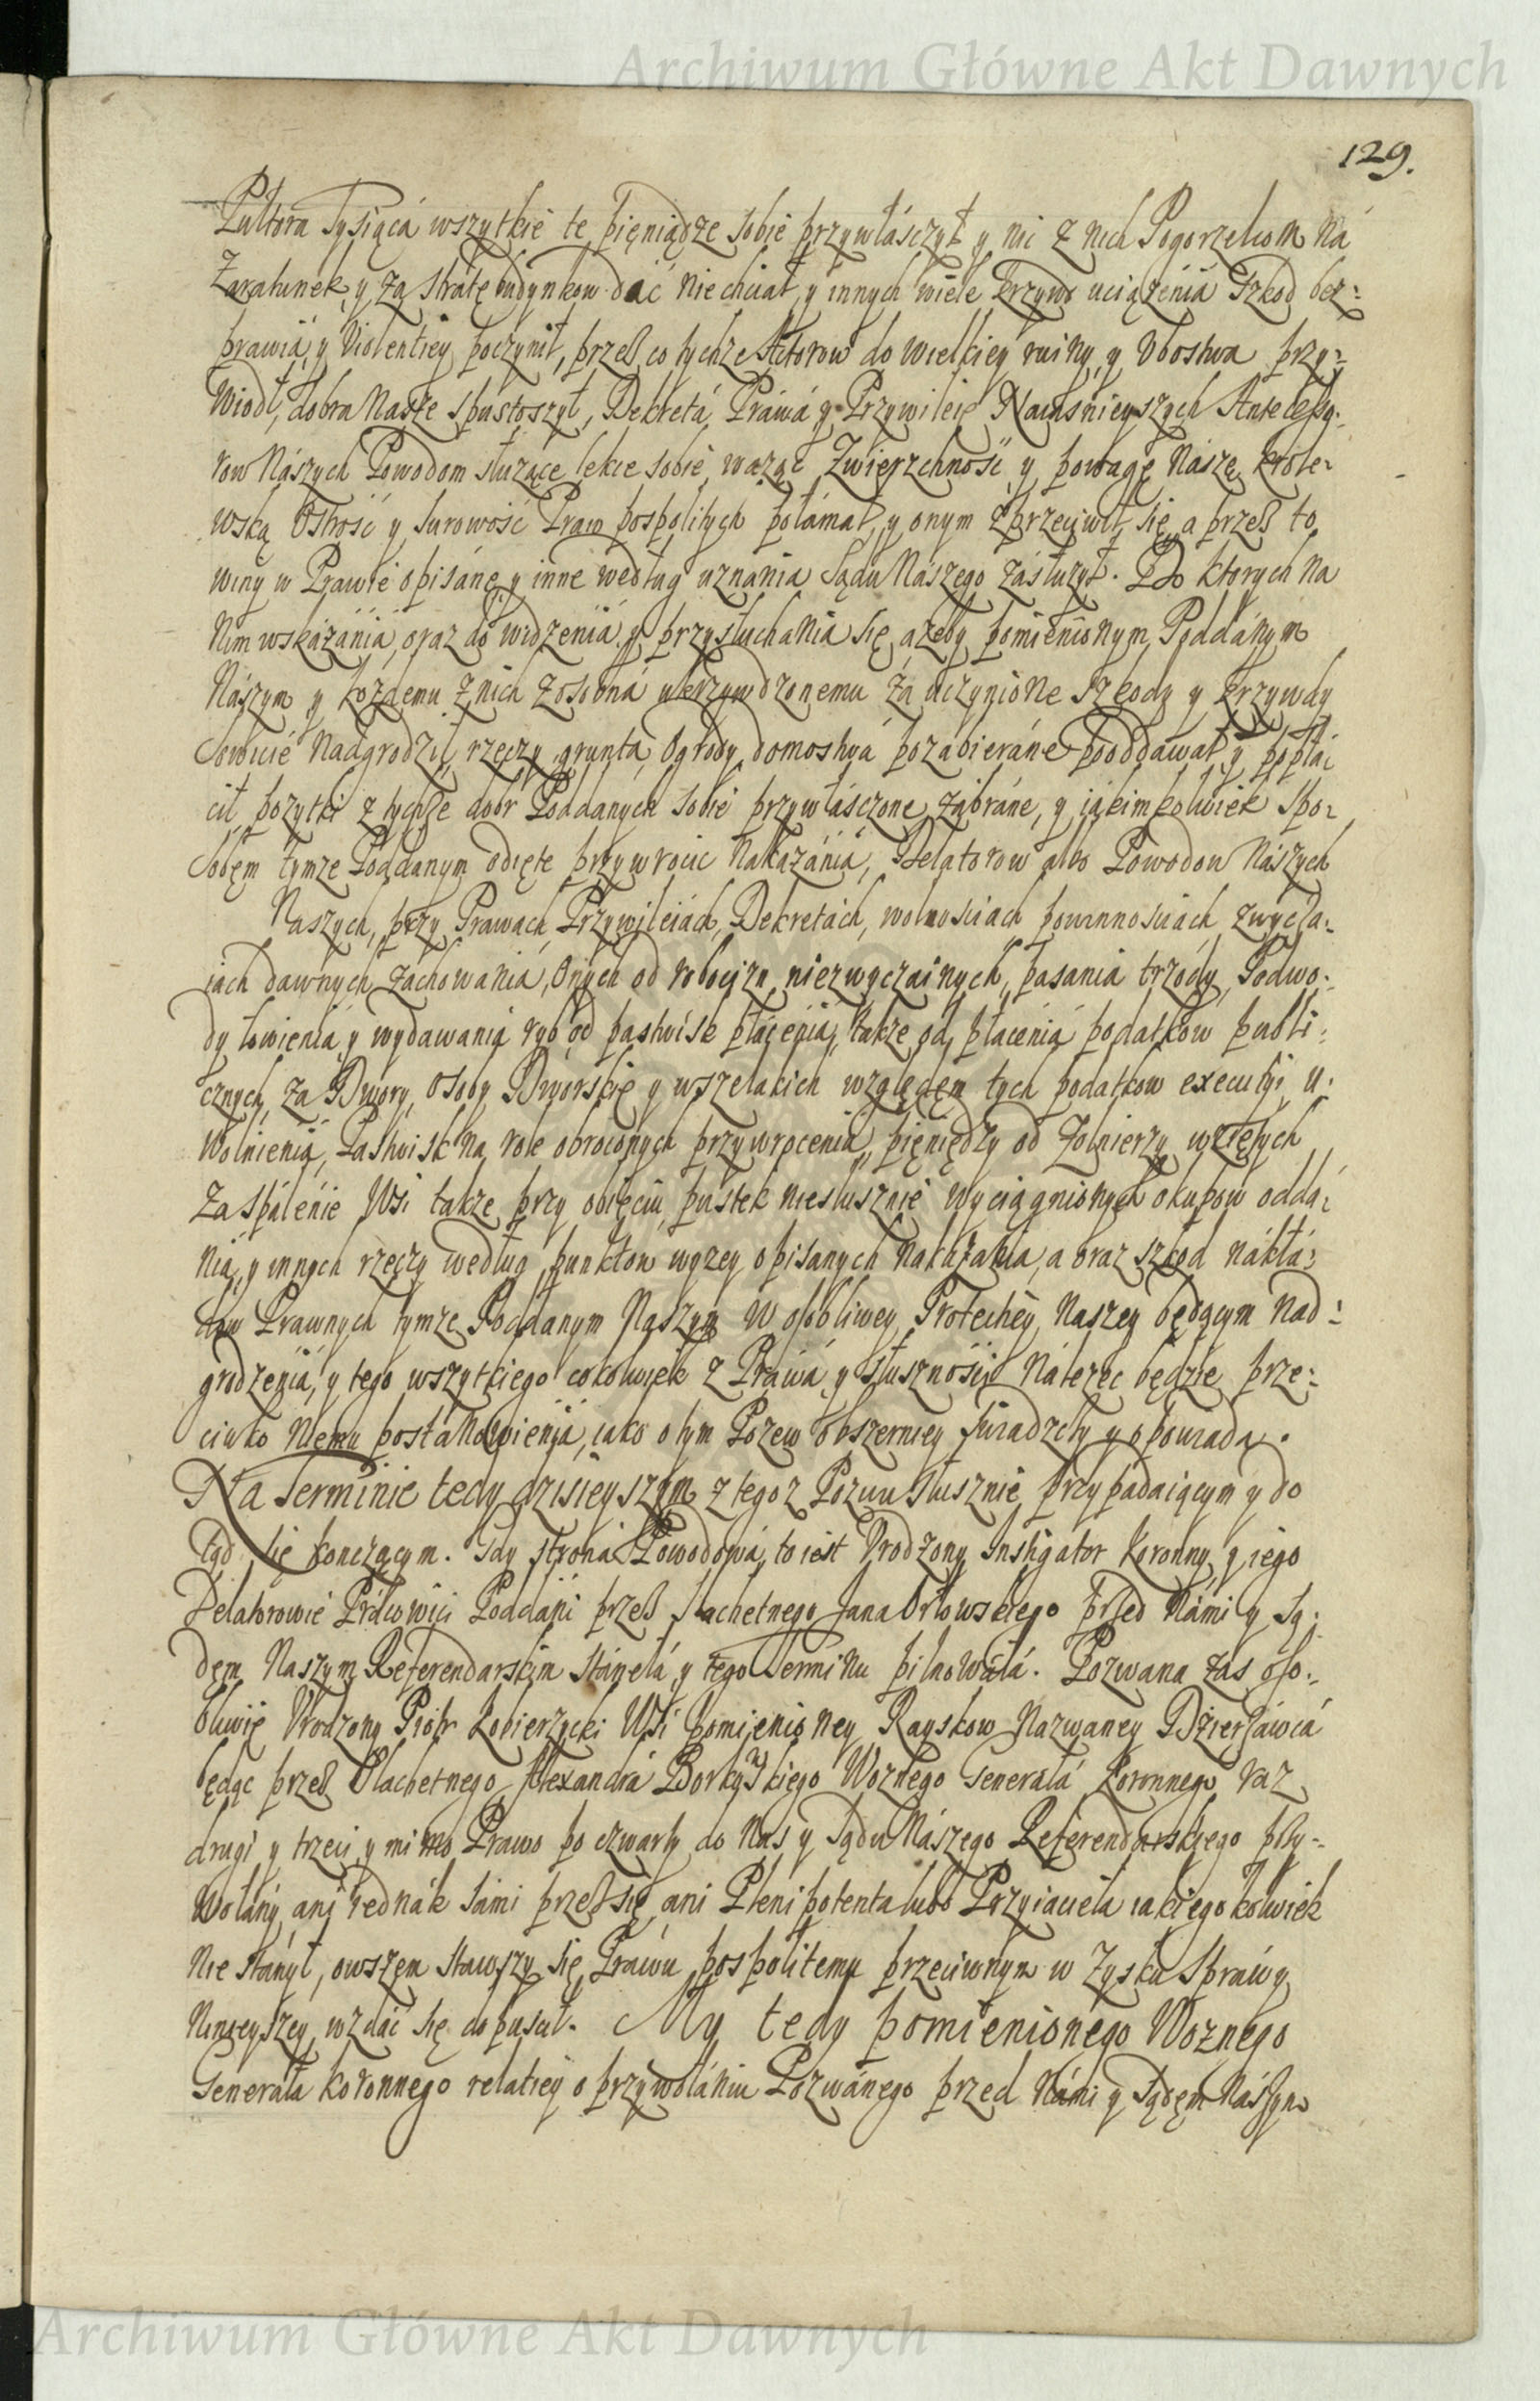 Archiwum Główne Akt Dawnych
129.
Pułtora Tysiąca wszytkie te pieniądze sobie przywłaszczył y nic z nich Pogorzelcom ná
Zaratunek y za stratę budynkow dać niechciał, y innych wiele krzywd uciążenia Szkod bez:
prawia y Violentiey poczynił, przeß co tychże Actorow do wielkiey ruiny y Vbostwa przy:
wiodł, dobra Nasze spustoszył, Dekretá Práwá y Przywileie Náiásnieyszych Antecesso:
row Nászych Powodom służące lekce sobie ważąc Zwierzchność y powagę Naszę krole:
wską Ostrość y surowość Praw pospolitych połámał, y onym sprzeciwił się a przeß to
winy w Prawie opisáne y inne według uznania Sądu Nászego zásłużył. Do ktorych na
nim wskázánia, oraz do widzenia y przysłuchania się ażeby pomienionym Poddánym
Nászym y kożdemu z nich zosobná ukrzywdzonemu zá uczynione szkody y krzywdy
Sowicie Nadgrodził, rzeczy grunta Ogrody domostwá pozábieráne pooddawał y popłá
cił pożytki z tychże dobr Poddanych sobie przywłászczone zábráne, y iákimkolwiek spo:
sobem tymże Poddanym odięte przywrocic Nakazánia, Delatorow albo Powodow Nászych
Naszych, przy Prawach Przywileiách, Dekretách, wolnosciach powinnosciach zwycza:
iach dawnych záchowánia, Onych od robocizn niezwyczainych, pasania trzody, Podwo:
dy łowienia y wydawania ryb od pastwisk płácenia, także od płacenia podatkow publi:
cznych, za Dwory, Osoby Dworskie y wszelakich względem tych podatkow executyi u:
wolnienia, Pastwisk na role obroconych przywrocenia, pieniędzy od żołnierzy wziętych
Za spálenie Wsi także przy obięciu pustek niesłusznie wyciągnionych okupow oddá:
nia, y innych rzeczy według punktow wyżey opisanych nakazania, a oraz szkod nákłá:
dow Prawnych tymże Poddanym Naszym w osobliwey Protekcyey Naszey będącym nad:
grodzenia, y tego wszytkiego cokolwiek z Práwá y słuszności Náleżec będzie prze:
ciwko Niemu postánowienia, iáko o tym Pozew obszerniey świadczy y opowiada.
Na Terminie tedy dzisieyszym z tegoż Pozwu słusznie przypadaiącym y do
tąd się kończącym. Gdy strona Powodowa to iest Vrodzony Instigator Koronny y iego
Delatorowie Prácowici Poddáni przeß Szlachetnego Jana Orłowskiego przed Námi y Są:
dem Naszym Referendarskim stánęłá y tego Terminu pilnowáłá. Pozwana zas oso:
bliwie Vrodzony Piotr Kobierzycki Wsi pomienioney Rayskow nazwaney Dzierżáwcá
będąc przeß Slachetnego Alexandrá Borkowskiego Woznego Generałá Koronnego raz
drugi y trzeci y mimo Prawo po czwarty do Nas y Sądu Nászego Referendarskiego przy:
wołány, ani iednák sámi przeß się, ani Plenipotenta lubo Przyiaciela iakiegokolwiek
nie stánył, owszem stawszy się Práwu pospolitemu przeciwnym w zysku Spráwy
Ninieyszey wzdác się dopuscił. My tedy pomienionego Woznego
Generała koronnego relatiey o przywołániu Pozwánego przed Námi y Sądem Nászym
Archiwum Główne Akt Dawnych